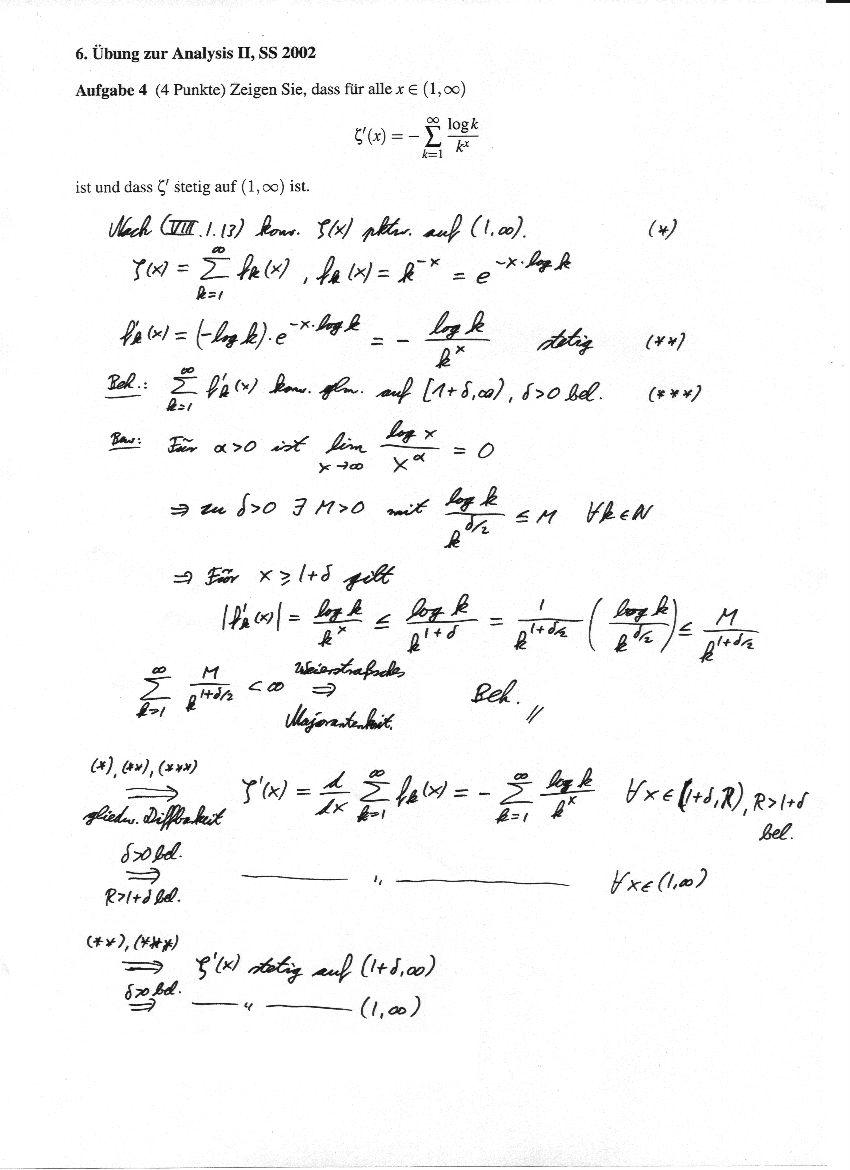 6. Übung zur Analysis II, SS 2002
Aufgabe 4 (4 Punkte) Zeigen Sie, dass für alle x ∈ (1,∞)
ζ′(x) = − ∑_{k=1}^{∞} log k / k^x
ist und dass ζ′ stetig auf (1,∞) ist.
Nach (VIII.1.13) konv. ζ(x) pktw. auf (1,∞). (*)
ζ(x) = ∑_{k=1}^{∞} f_k(x), f_k(x) = k^{-x} = e^{-x·log k}
f'_k(x) = (-log k)·e^{-x·log k} = - log k / k^x stetig (**)
Beh.: ∑_{k=1}^{∞} f'_k(x) konv. glm. auf [1+δ,∞), δ>0 bel. (***)
Bew: Für α>0 ist lim_{x→∞} log x / x^α = 0
⇒ zu δ>0 ∃ M>0 mit log k / k^{δ/2} ≤ M ∀k∈N
⇒ Für x ≥ 1+δ gilt
|f'_k(x)| = log k / k^x ≤ log k / k^{1+δ} = 1 / k^{1+δ/2} (log k / k^{δ/2}) ≤ M / k^{1+δ/2}
∑_{k=1}^{∞} M / k^{1+δ/2} < ∞ Weierstraßsches ⇒ Majorantenkrit. Beh. //
(*), (**), (***)
⇒ ζ'(x) = d/dx ∑_{k=1}^{∞} f_k(x) = - ∑_{k=1}^{∞} log k / k^x ∀x∈(1+δ,R), R>1+δ
gliedw. Diffbarkeit bel.
δ>0 bel.
⇒ —— " —— ∀x∈(1,∞)
R>1+δ bel.
(**), (***)
⇒ ζ'(x) stetig auf (1+δ,∞)
δ>0 bel.
⇒ —— " —— (1,∞)